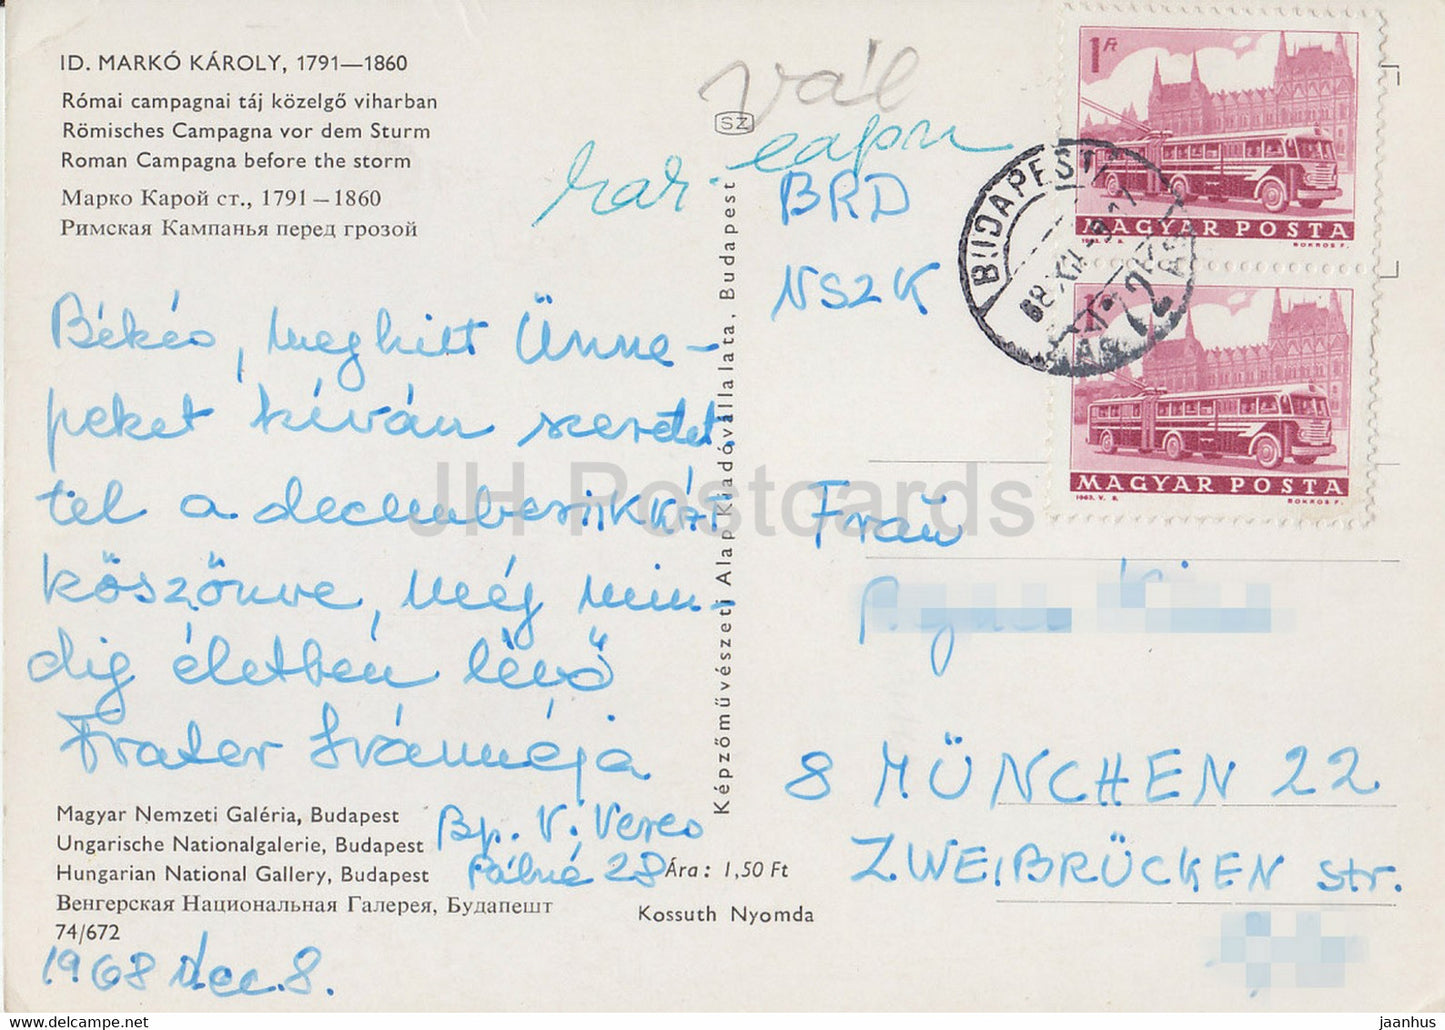 ID. MARKÓ KÁROLY, 1791—1860
Római campagnai táj közelgő viharban
Römisches Campagna vor dem Sturm
Roman Campagna before the storm
Марко Карой ст., 1791 – 1860
Римская Кампанья перед грозой
Békés, meghitt Ünne-
peket kíván szeretet
tel a decemberiikkét
köszönve, még min-
dig életben lévő
Frater Ivánnéja
Bp. V. Veres
Pálné 28
Magyar Nemzeti Galéria, Budapest
Ungarische Nationalgalerie, Budapest
Hungarian National Gallery, Budapest
Венгерская Национальная Галерея, Будапешт
74/672
1968 Dec. 8.
Ára: 1,50 Ft
Kossuth Nyomda
Képzőművészeti Alap Kiadóvállalata, Budapest
SZ
vál
BRD
NSZK
Frau
8 MÜNCHEN 22
ZWEIBRÜCKEN str.
1 Ft
MAGYAR POSTA
1963. V. 8.
BOKROS F.
1
MAGYAR POSTA
1963. V. 8.
BOKROS F.
BUDAPEST
JH Postcards
jaanhus